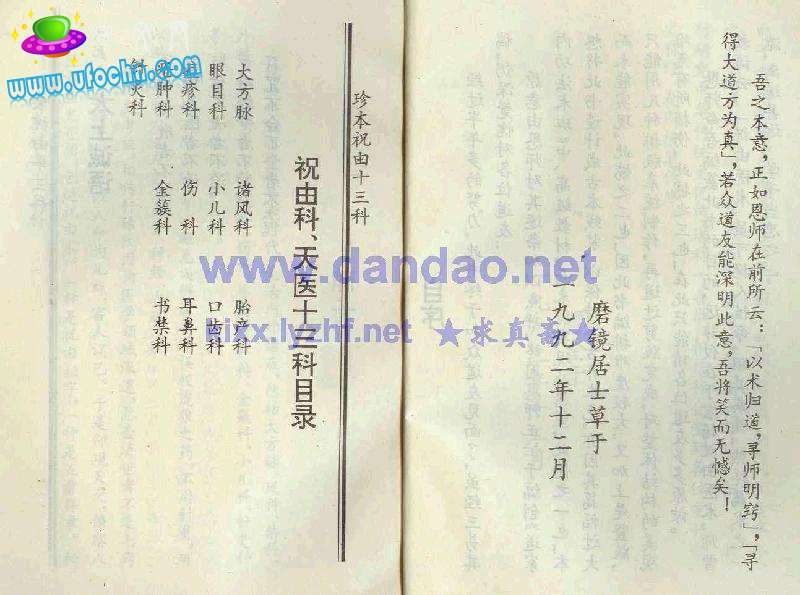 吾之本意，正如恩师在前所云：「以术归道，寻师明窍」，「寻
得大道方为真」，若众道友能深明此意，吾将笑而无憾矣！
磨镜居士草于
一九九二年十二月
珍本祝由十三科
祝由科、天医十三科目录
大方脉 诸风科 胎产科
眼目科 小儿科 口齿科
疹科 伤科 耳鼻科
肿科 金簇科 书禁科
科
www.ufochi.com
www.dandao.net
lixx.lyzhf.net ★求真斋★